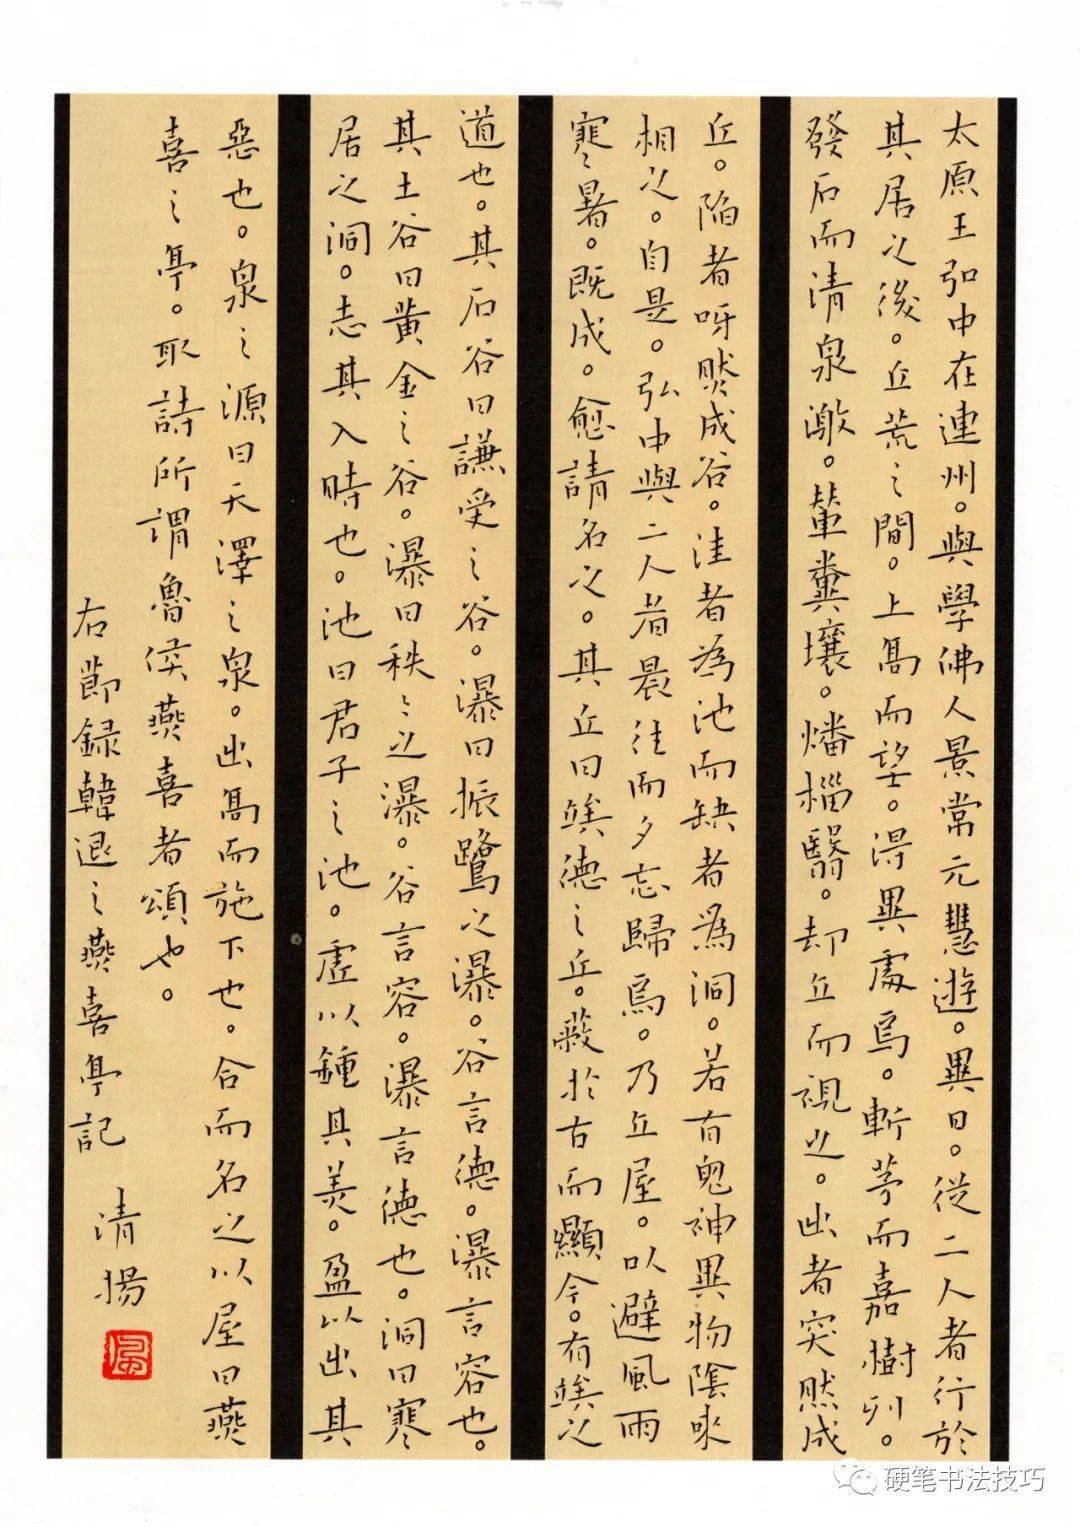 太原王弘中在連州。與學佛人景常元慧遊。異日。從二人者行於
其居之後。丘荒之間。上高而望。得異處焉。斬茅而嘉樹列。
發石而清泉激。輦糞壤。燔椔翳。却丘而視之。出者突然成
丘。陷者呀然成谷。洼者為池而缺者為洞。若有鬼神異物陰來
相之。自是。弘中與二人者晨往而夕忘歸焉。乃立屋。以避風雨
寒暑。既成。愈請名之。其丘曰竢德之丘。蔽於古而顯今。有竢之
道也。其石谷曰謙受之谷。瀑曰振鷺之瀑。谷言德。瀑言容也。
其土谷曰黄金之谷。瀑曰秩々之瀑。谷言容。瀑言德也。洞曰寒
居之洞。志其入時也。池曰君子之池。虛以鍾其美。盈以出其
惡也。泉之源曰天澤之泉。出高而施下也。合而名之以屋曰燕
喜之亭。取詩所謂魯侯燕喜者頌也。
右節録韓退之燕喜亭記 清揚
硬笔书法技巧